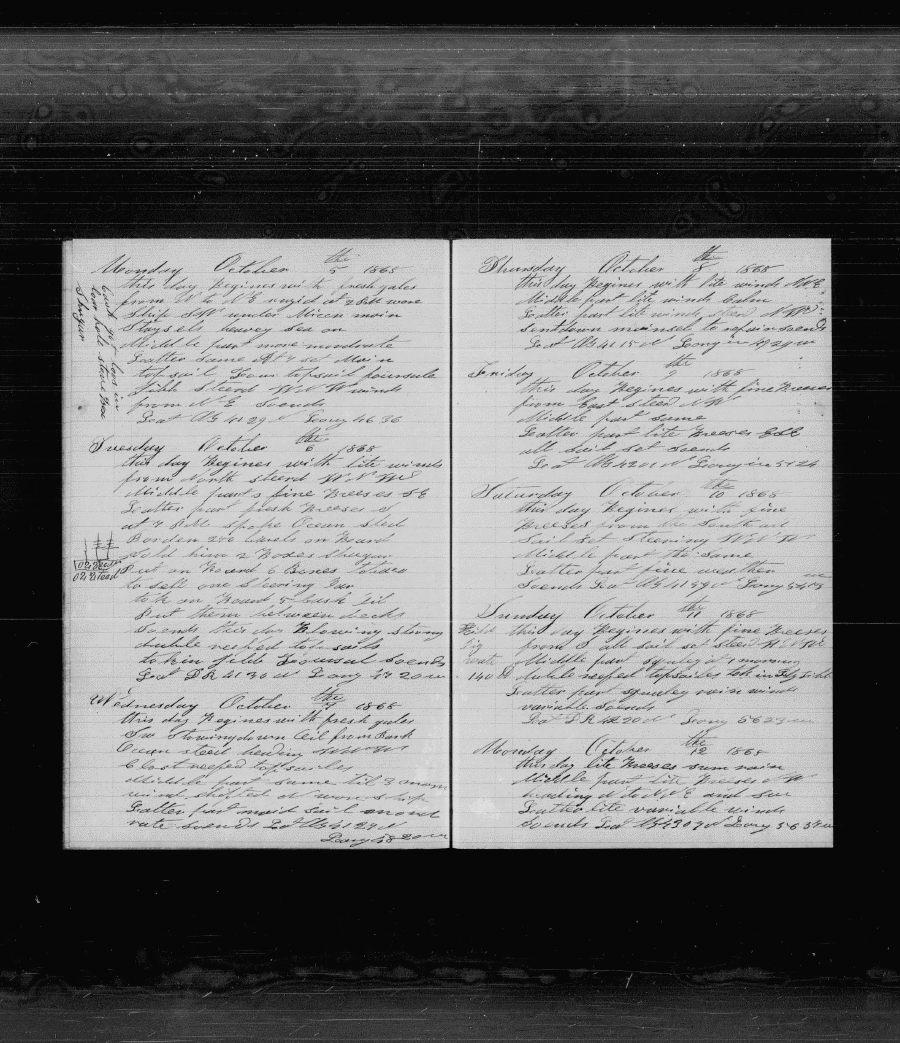 Monday October 5 the 1868
this day Begines with fresh gales
from N to N E at 2 P.M wore
Ship S W under Micen main
Staysels heavey Sea on
Middle part more moderate
Latter Same set Main
top sail topsail
Jibb Steerd W N W winds
from N E Soends
Lat 41 29 N Long 46 36
Tuesday October 6 the 1868
this day Begines with lite winds
from North steerd W N W
Middle part fine Breeses S E
Latter part fresh Breeses S
at 4 P.M. spoke Ocean Sted
Borden 240 barels on Board
Sold him 2 Boxes Shugar
Put on Board 6 Boxes tobaco
to sell one Steering
took on Board 5 Cask Oil
Put them between decks
Soends this day Blowing strong
duble reefed topsails
tok in Jibb Soends
Lat D R 41 30 N Long 47 20 W
Wednesday October 7 the 1868
this day Begines with fresh gales
S W Stowing down Oil from Bark
Ocean steel heading
Close reefed topsailes
Middle part same til 3 morn
wind shifted N wore ship
Latter part mode
rate soends Lat 41 29 N
Long 48 20 W
Cask
low hole
Shugar
Thursday October 8 the 1868
this day Begines with lite winds
Middle part lite winds Calm
Latter part lite winds
Sentdown mainsel to repair soends
Lat 41 15 N Long in 49 29 W
Friday October 9 the 1868
this day Begines with fine Breeses
from East steed N W
Middle part same
Latter part lite Breeses
all sail set soends
Lat 42 01 N Long in 51 24
Saturday October 10 the 1868
this day Begines with fine
Breeses from the South all
Sail set Steering
Middle part the Same
Latter part fine weather
Soends Lat 41 59 N Long
Sunday October 11 the 1868
this day Begines with fine Breeses
from S all sail set steerd
Middle part squaley at 1 morning
duble reefed topsailes tok in
Latter part squaley rain winds
variable Soends
Lat D R 42 20 N Long 56 23 W
140 lb
Monday October 12 the 1868
this day lite Breeses sum rain
Middle part lite Breeses N W
heading N to N N E and SW
Latter lite variable winds
Soends Lat 43 09 N Long 56 39 W